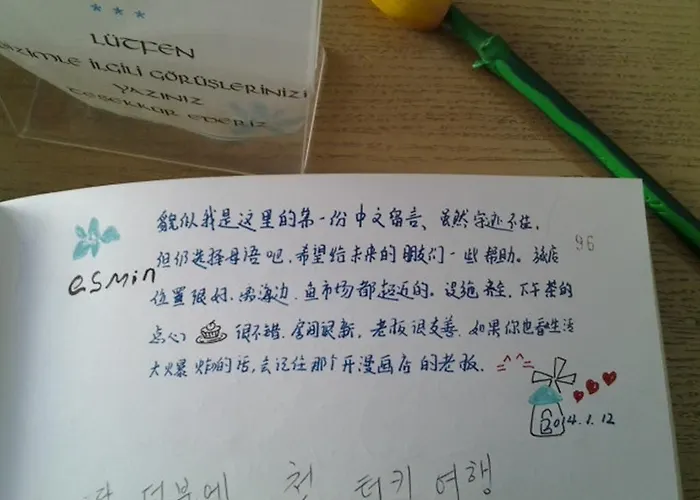 LÜTFEN
BİZİMLE İLGİLİ GÖRÜŞLERİNİZİ
YAZINIZ
TEŞEKKÜR EDERİZ
esmin
96
貌似我是这里的第一份中文留言、虽然字迹不佳,
但仍选择母语吧,希望给未来的朋友们一些帮助。该店
位置很好,离海边、鱼市场都超近的。设施齐全,下午茶的
点心 很不错,房间很新,老板很友善,如果你也看生活
大爆炸的话,会记住那个开漫画店的老板. =^^=
2014.1.12
덕분에 첫 터키 여행